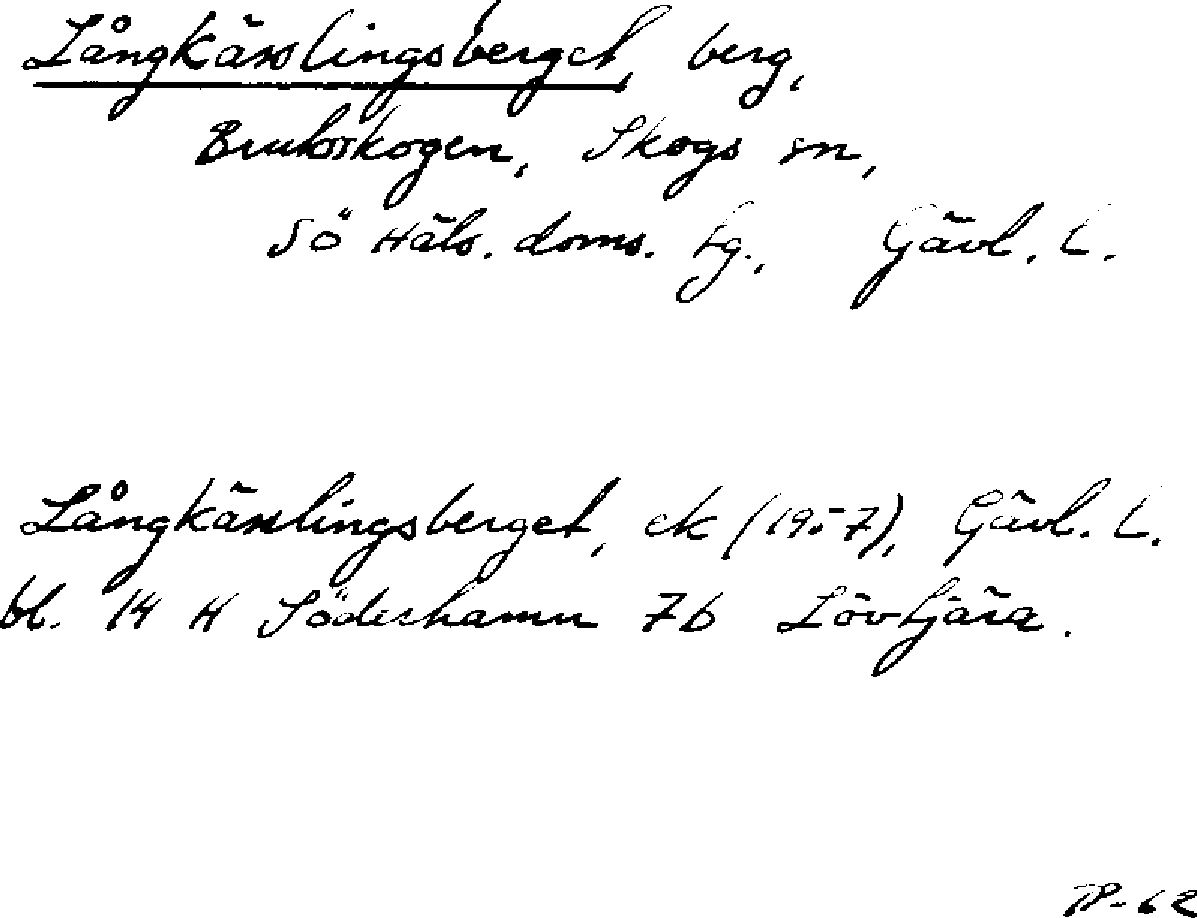 Långkässlingsberget, berg,
Bruksskogen, Skogs sn,
Sö Häls. doms. tg., Gävl. l.
Långkässlingsberget, ek (1957), Gävl. L.
bl. 14 H Söderhamn 7b Lövtjära.
TP-62